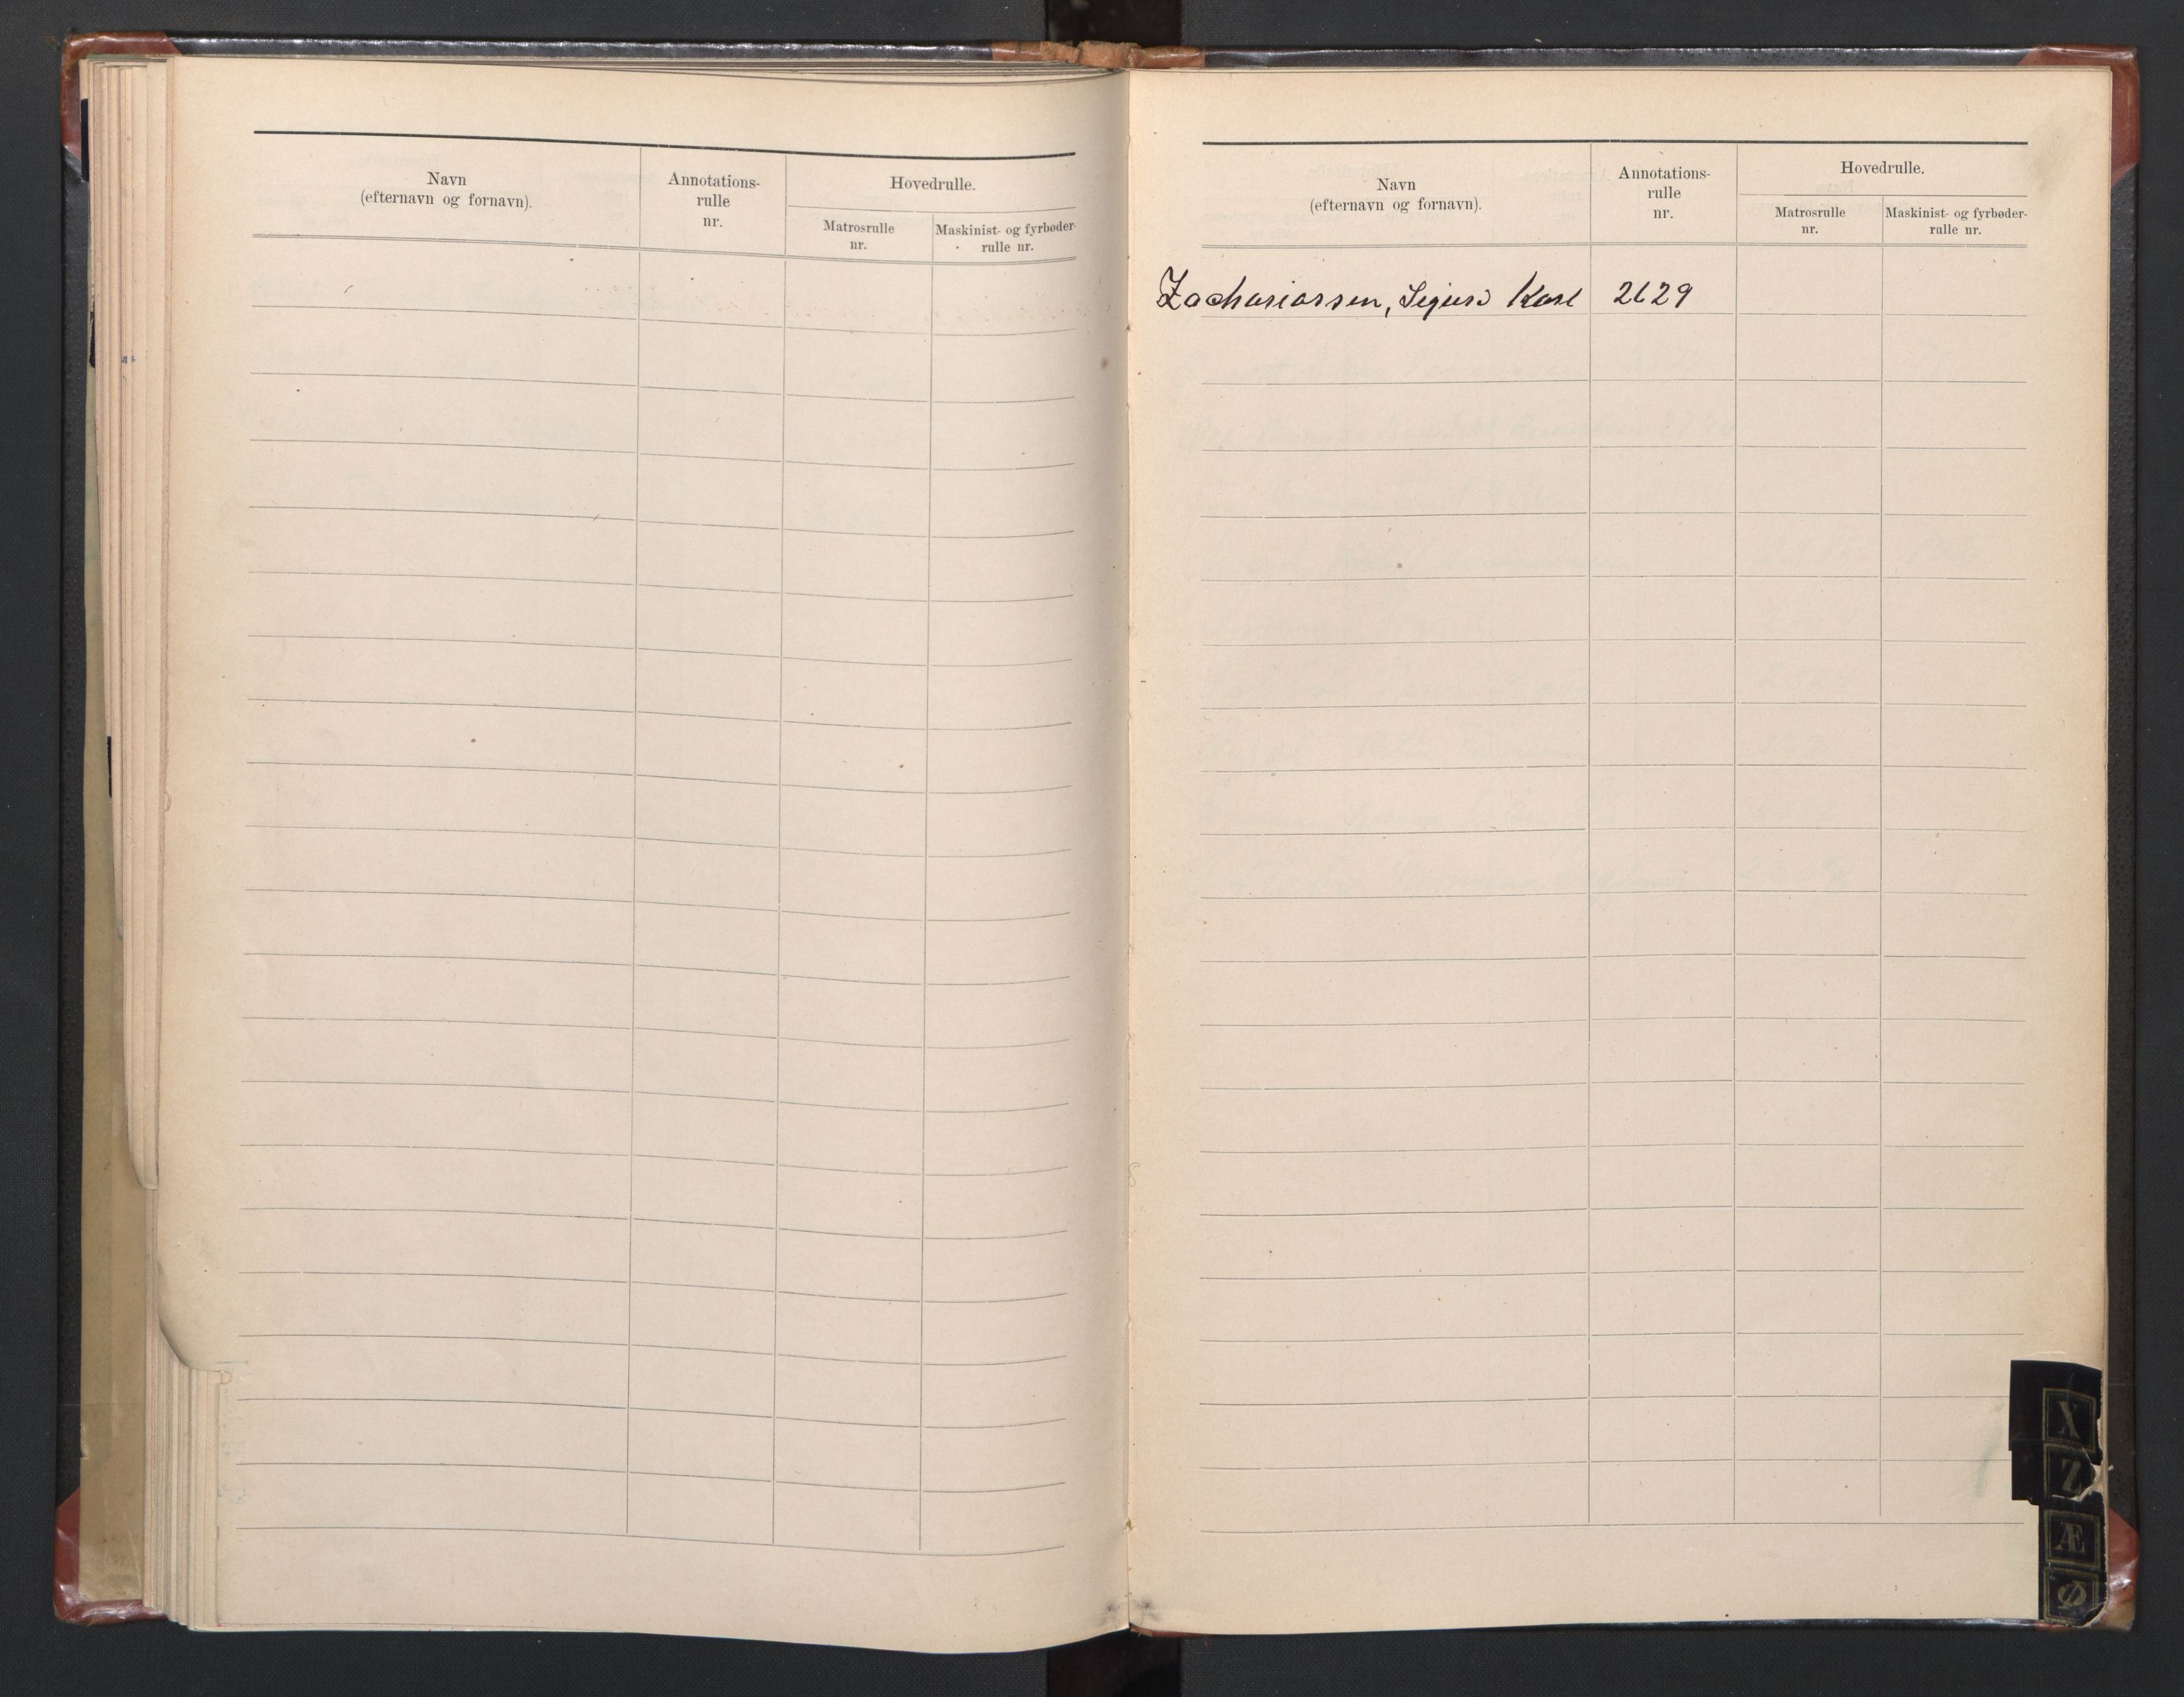 Navn
(efternavn og fornavn).
Annotations-
rulle
nr.
Hovedrulle.
Matrosrulle
nr.
Maskinist- og fyrbøder-
rulle nr.
Navn
(efternavn og fornavn).
Annotations-
rulle
nr.
Hovedrulle.
Matrosrulle
nr.
Maskinist- og fyrbøder-
rulle nr.
Zachariassen, Sigurd Karl 2629
X
Z
Æ
Ø